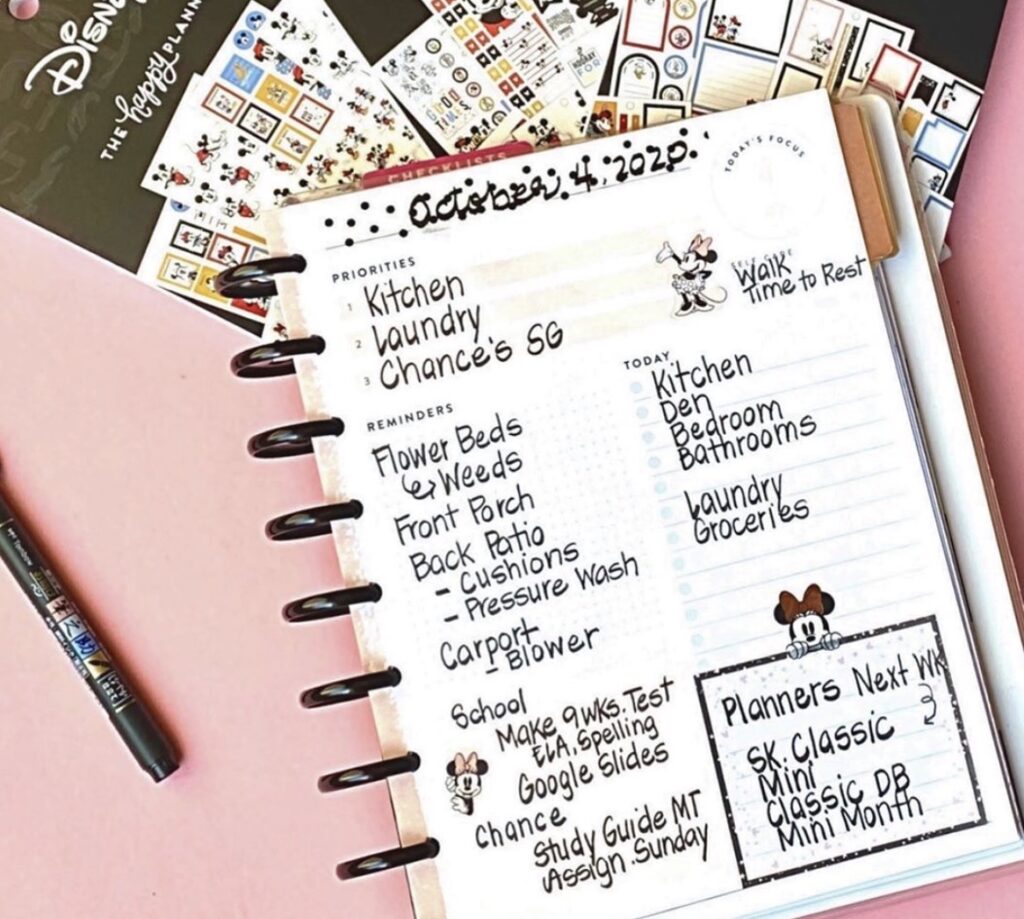 Disney
THE happy PLANN
GOOD TIMES
CHECKLISTS
October 4, 2020
TODAY'S FOCUS
PRIORITIES
1 Kitchen
2 Laundry
3 Chance's SG
Walk
Time to Rest
REMINDERS
Flower Beds
Weeds
Front Porch
Back Patio
- Cushions
- Pressure Wash
Carport
- Blower
School
Make 9wks. Test
ELA, Spelling
Google Slides
Chance
Study Guide MT
Assign. Sunday
TODAY
Kitchen
Den
Bedroom
Bathrooms
Laundry
Groceries
Planners Next Wk
SK. Classic
Mini
Classic DB
Mini Month